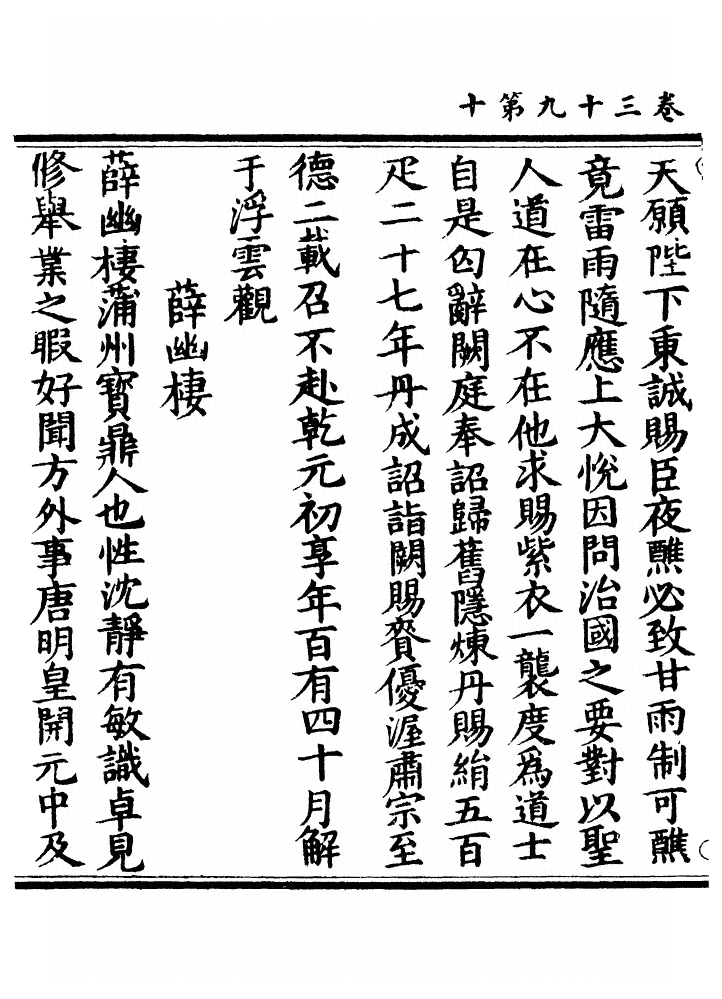 卷三十九第十
天願陛下東誠賜臣夜醮必致甘雨制可醮
竟雷雨隨應上大悅因問治國之要對以聖
人道在心不在他求賜紫衣一襲度爲道士
自是匃辭闕庭奉詔歸舊隱煉丹賜絹五百
疋二十七年丹成詔詣闕賜賚優渥肅宗至
德二載召不赴乾元初享年百有四十月解
于浮雲觀
薛幽棲
薛幽棲蒲州寶鼎人也性沈靜有敏識卓見
修舉業之暇好聞方外事唐明皇開元中及